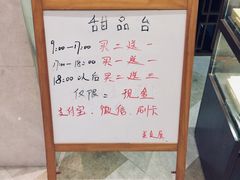 甜品台
9:00-17:00 买二送一
17:00-18:00 买一送一
18:00以后 买二送三
仅限：现金
支付宝、微信、刷卡